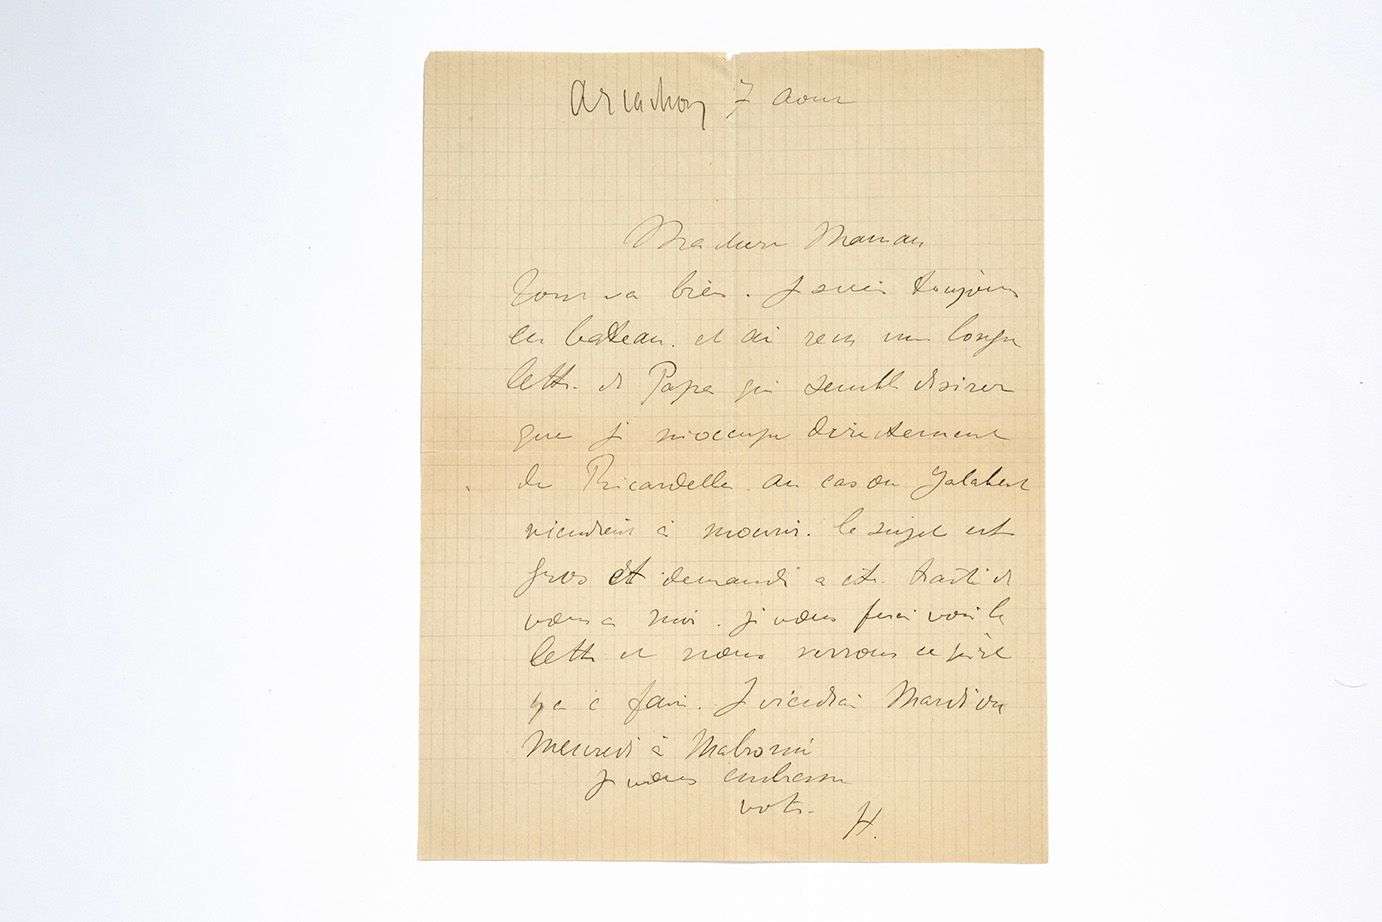 Arcachon 7 Aout
Ma chere Maman
Tout va bien. Je suis toujours
en bateau. et ai recu une longue
lettre de Papa qui semble desirer
que je m'occupe directement
de Ricardelle au cas ou Jalabert
viendrait à mourir. le sujet est
gros et demande a etre traité de
vous a moi. je vous ferai voir la
lettre et nous verrons ce
qu'il y a à faire. Je viendrai Mardi ou
Mercredi à Malromé
je vous embrasse
votre H.